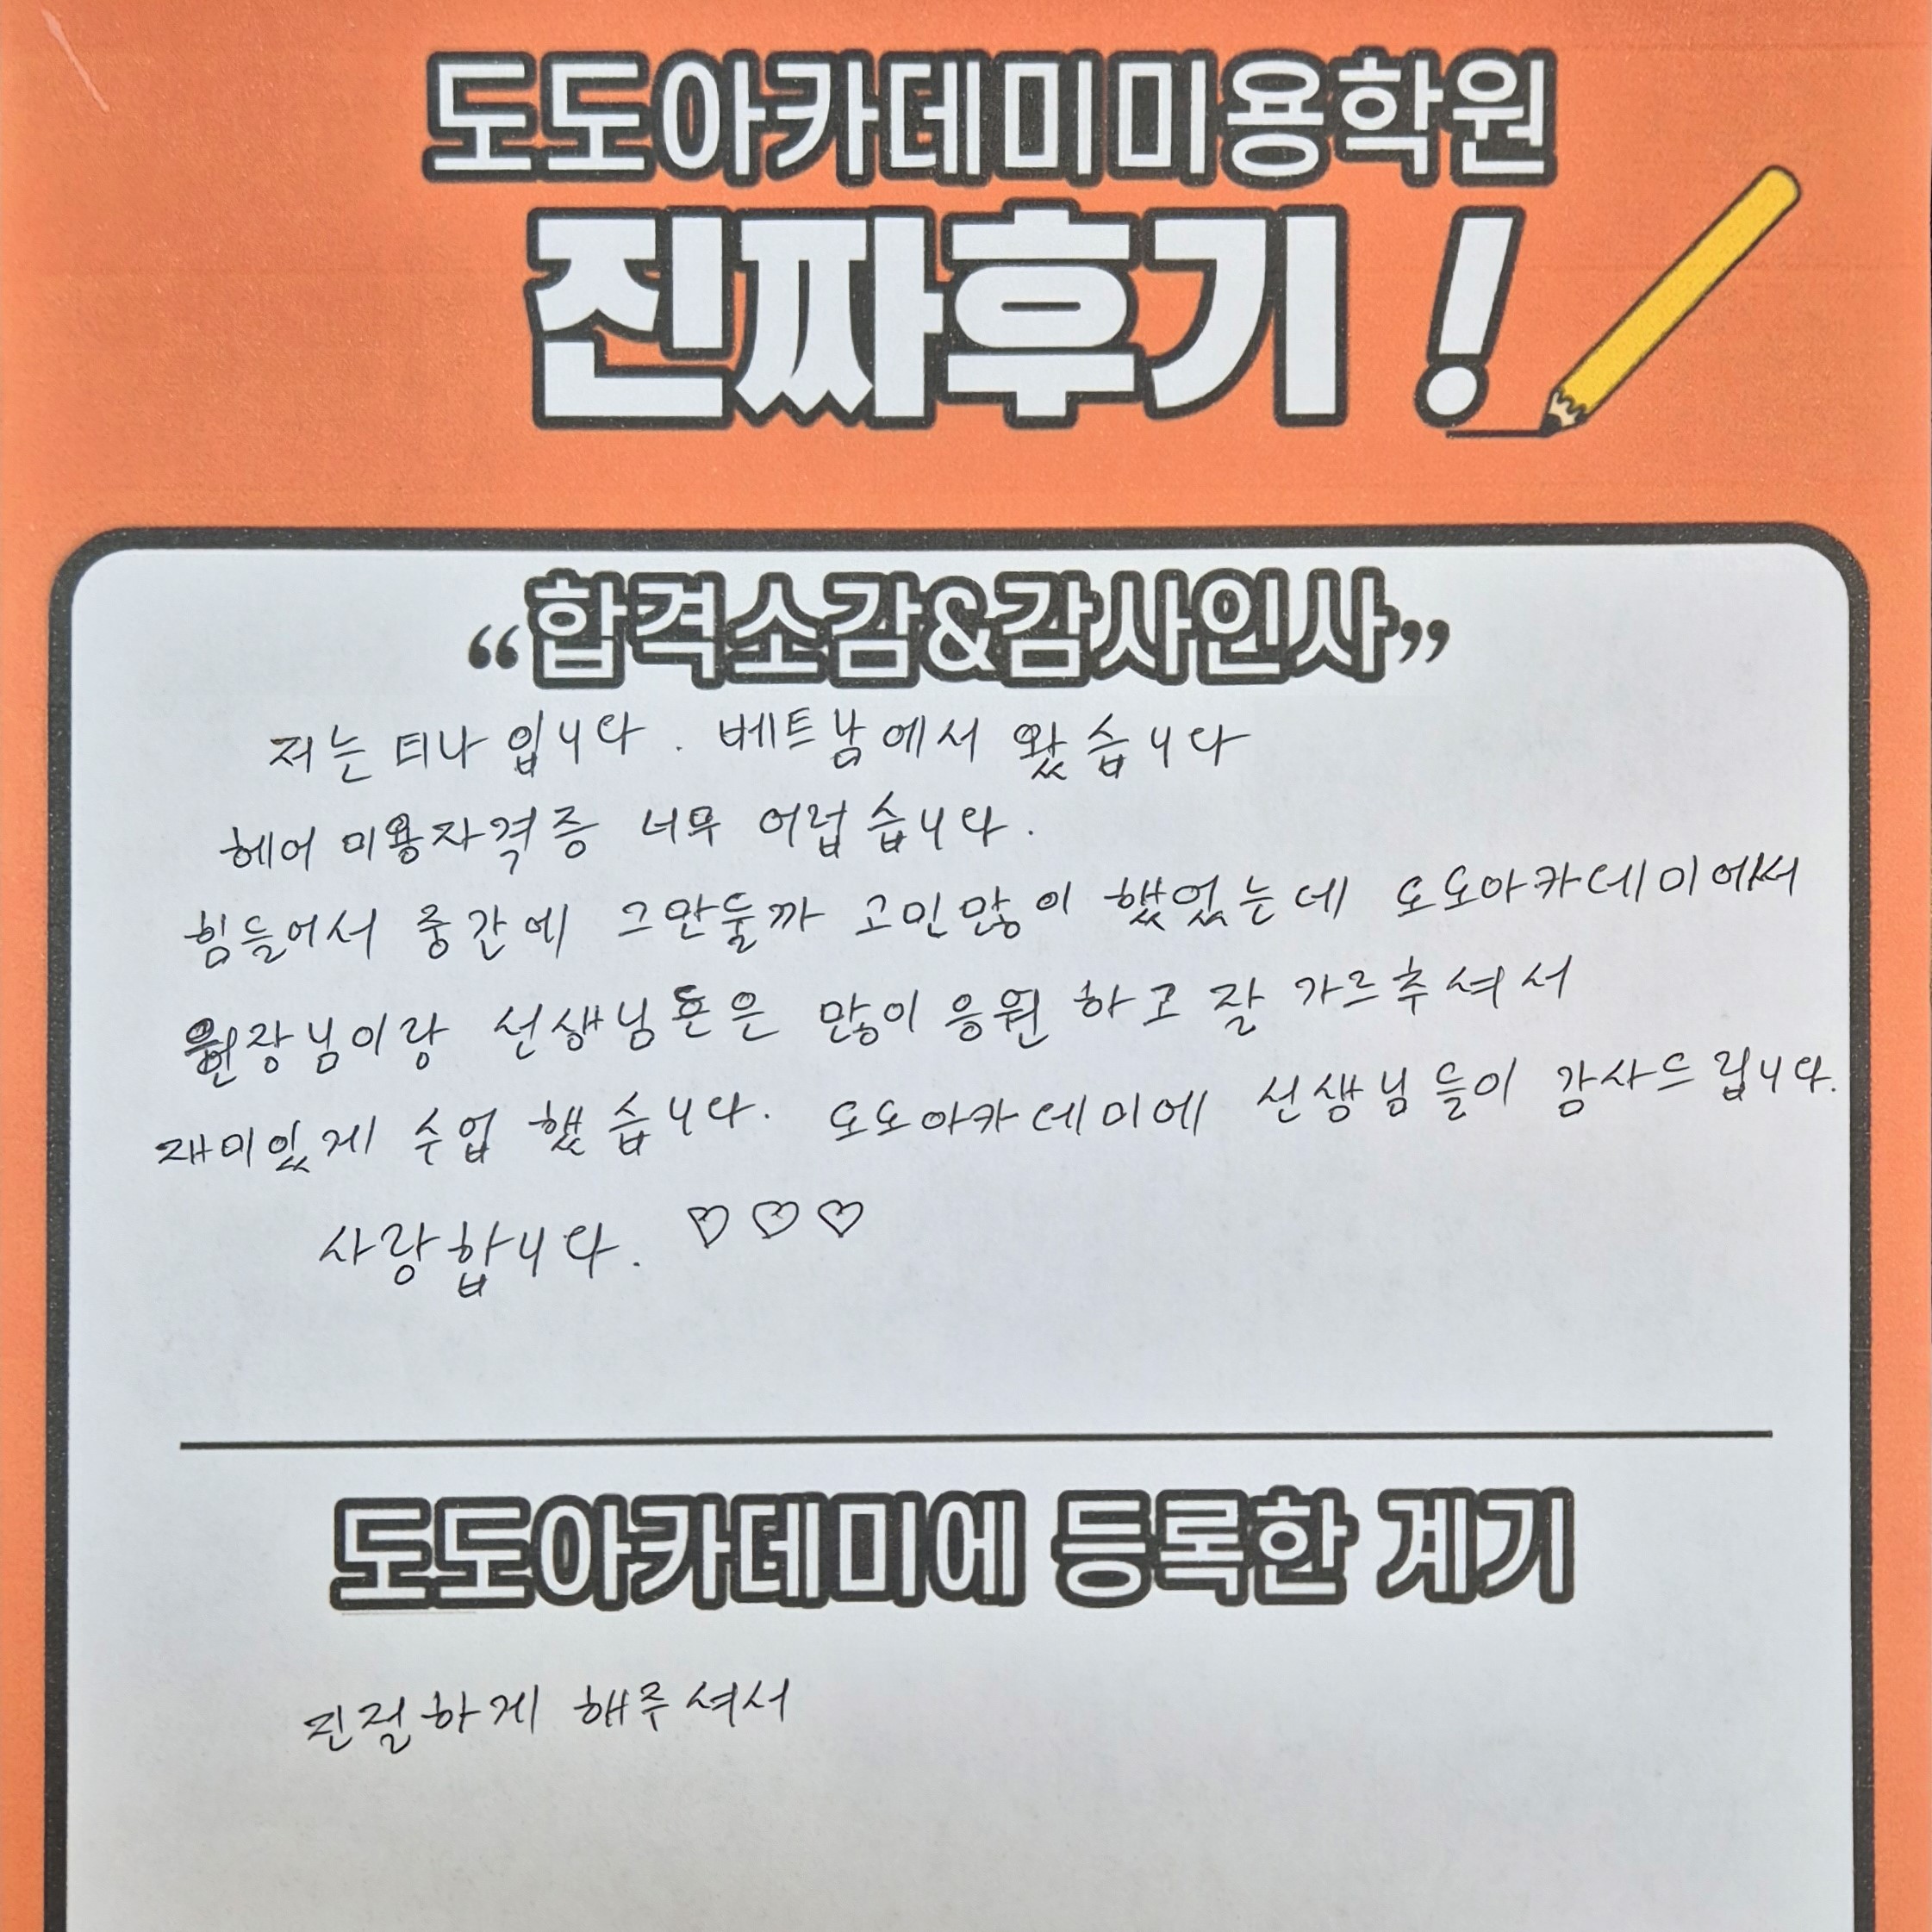 도도아카데미미용학원
진짜후기!
“합격소감&감사인사”
저는 티나 입니다. 베트남에서 왔습니다
헤어 미용자격증 너무 어럽습니다.
힘들어서 중간에 그만둘까 고민많이 했었는데 도도아카데미에서
원장님이랑 선생님 은 많이 응원 하고 잘 가르추셔서
재미있게 수업 했습니다. 도도아카데미에 선생님들이 감사드립니다.
사랑합니다. ♡♡♡
도도아카데미에 등록한 계기
친절하게 해주셔서